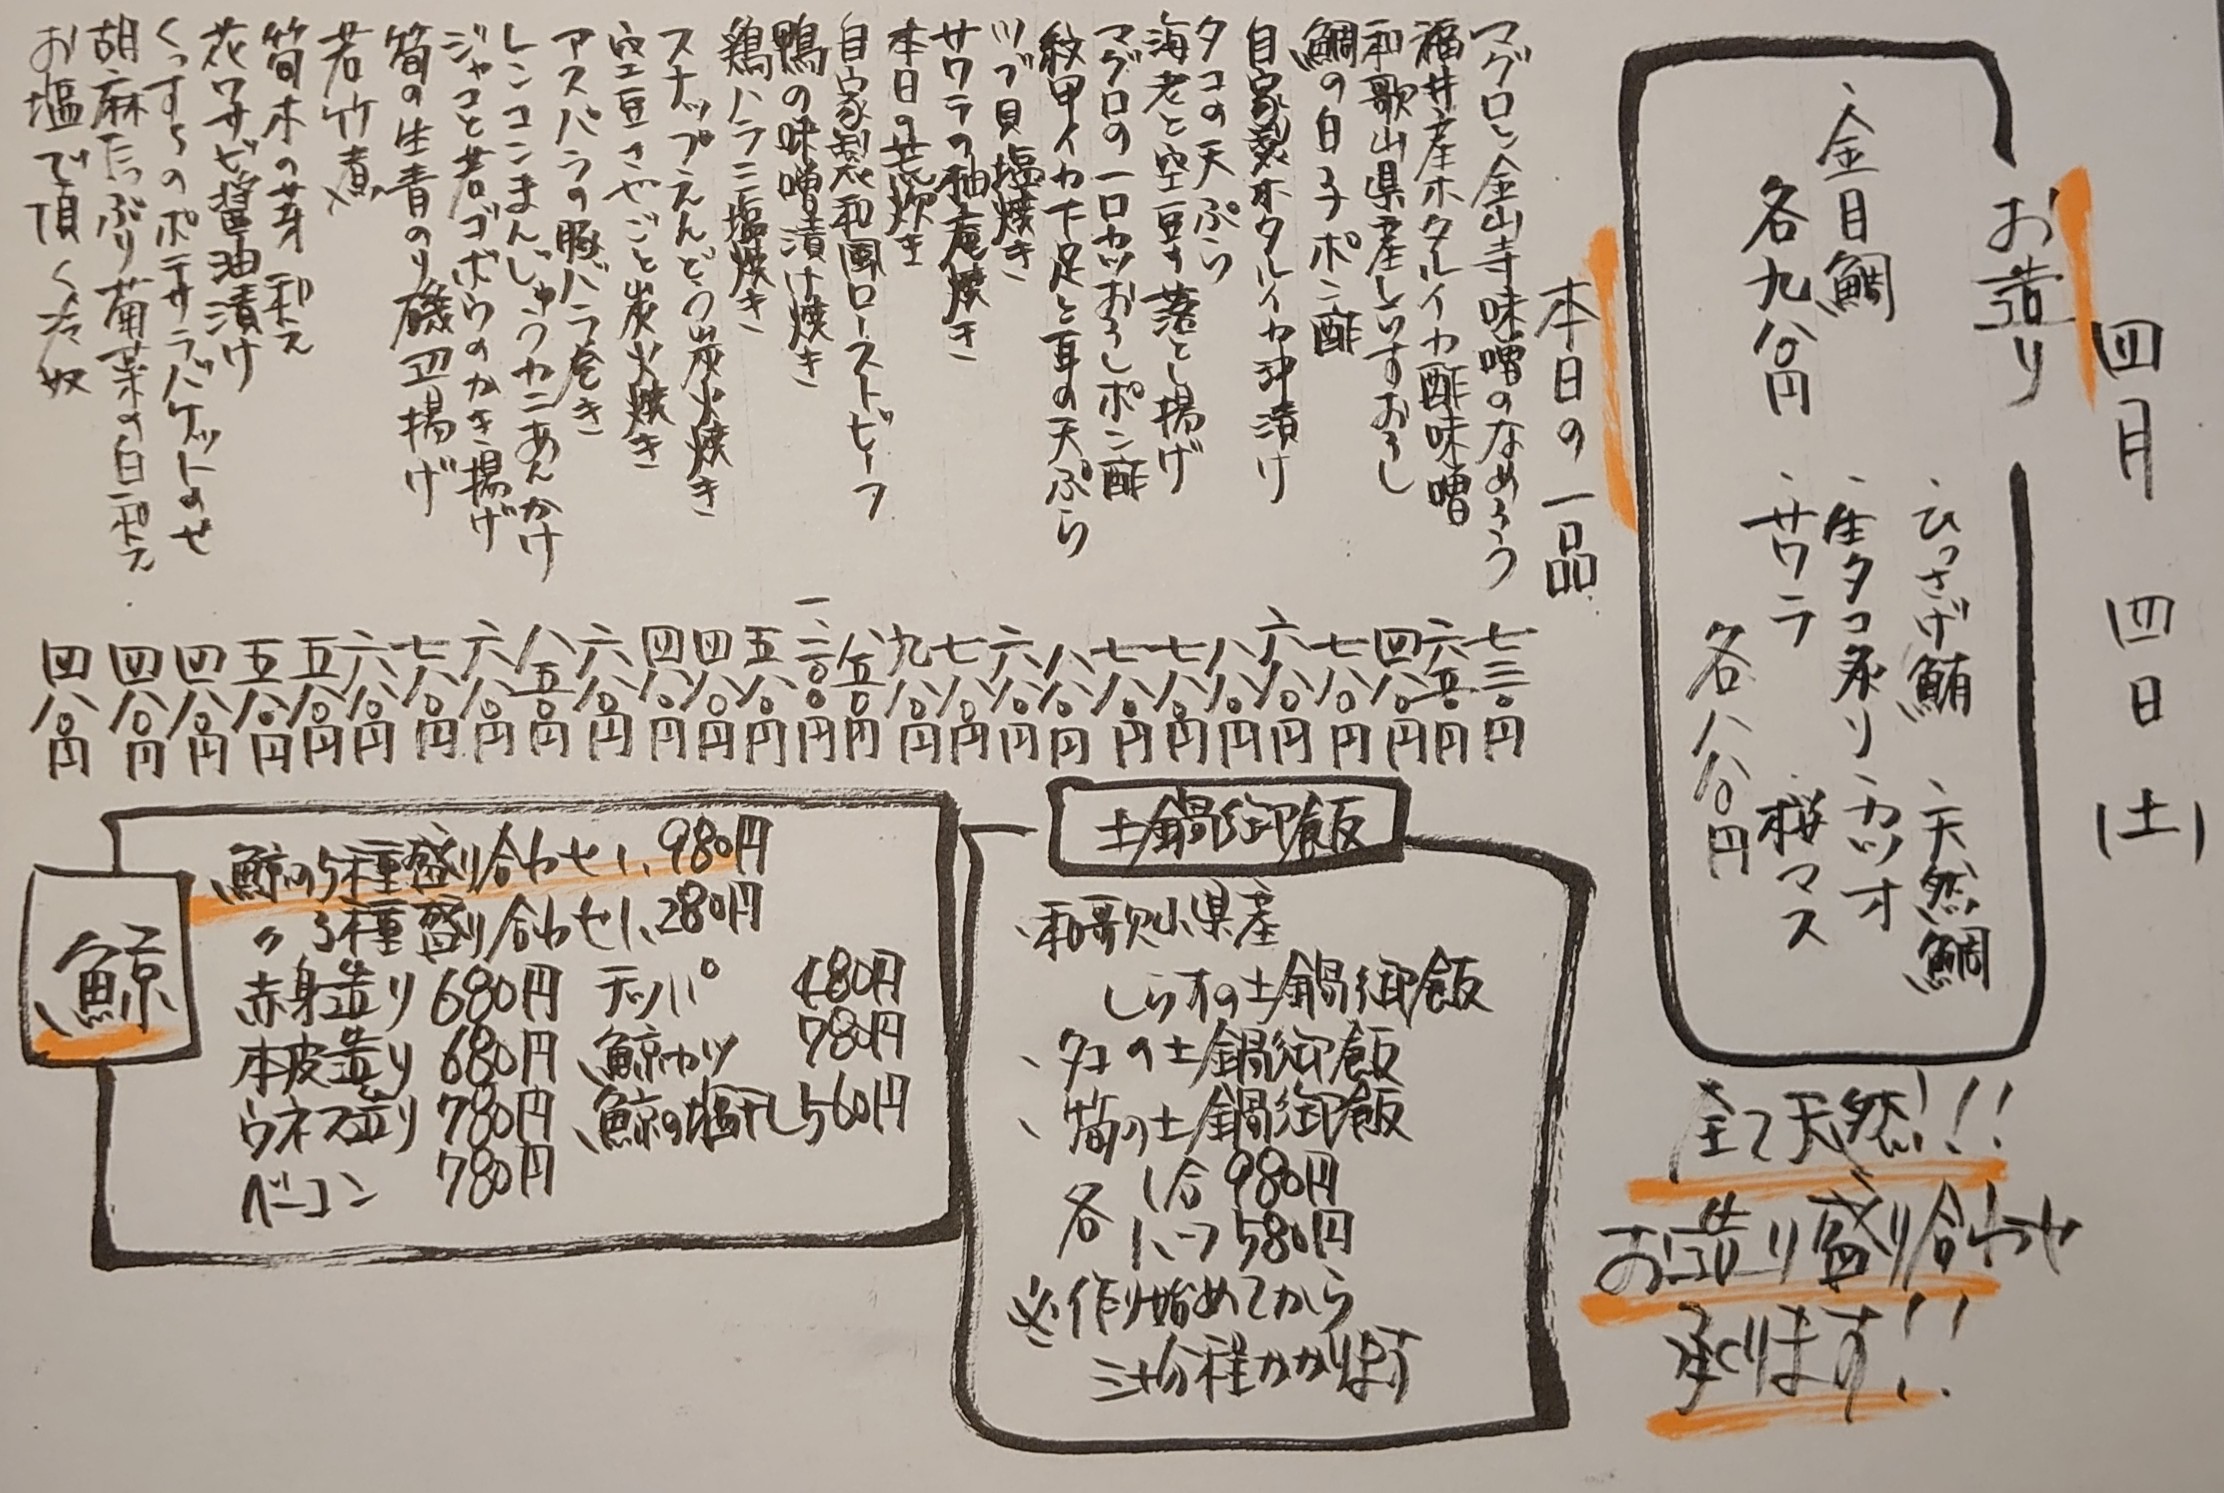 四月 四日(土)
お造り
、ひっさげ鮪 、天然鯛
、生タコ炙り 、カツオ
、サワラ 、桜マス
各八八〇円
、金目鯛
各九八〇円
全て天然!!
お造り盛り合わせ
承ります!!
本日の一品
マグロと金山寺味噌のなめろう 七三〇円
福井産ホタルイカ酢味噌 六五〇円
和歌山県産しらすおろし 四八〇円
鯛の白子ポン酢 七八〇円
自家製ホタルイカ沖漬け 六八〇円
タコの天ぷら 八八〇円
海老と空豆の落とし揚げ 七八〇円
マグロの一口カツおろしポン酢 七八〇円
紋甲イカ下足と耳の天ぷら 八八〇円
ツブ貝塩焼き 六八〇円
サワラの柚庵焼き 七八〇円
本日の荒炊き 九八〇円
自家製和風ローストビーフ 八五〇円
鴨の味噌漬け焼き 一、二〇〇円
鶏ハラミ塩焼き 五八〇円
スナップえんどうの炭火焼き 四八〇円
空豆さやごと炭火焼き 四八〇円
アスパラの豚バラ巻き 六八〇円
レンコンまんじゅうカニあんかけ 八五〇円
ジャコと若ゴボウのかき揚げ 六八〇円
筍の生青のり磯辺揚げ 七八〇円
若竹煮 六八〇円
筍木の芽和え 五八〇円
花ワサビ醤油漬け 五八〇円
くんすらのポテサラバゲットのせ 四八〇円
胡麻たっぷり菊菜の白和え 四八〇円
お塩で頂く冷奴 四八〇円
土鍋御飯
、和歌山県産
しらすの土鍋御飯
、タコの土鍋御飯
、筍の土鍋御飯
各 1合 980円
各 1/2 580円
※作り始めてから
三十分程かかります
鯨
鯨の5種盛り合わせ 1,980円
〃 3種盛り合わせ 1,280円
赤身造り 680円 テッパ 480円
本皮造り 680円 鯨カツ 780円
ウネス造り 780円 鯨の塩干し 560円
ベーコン 780円